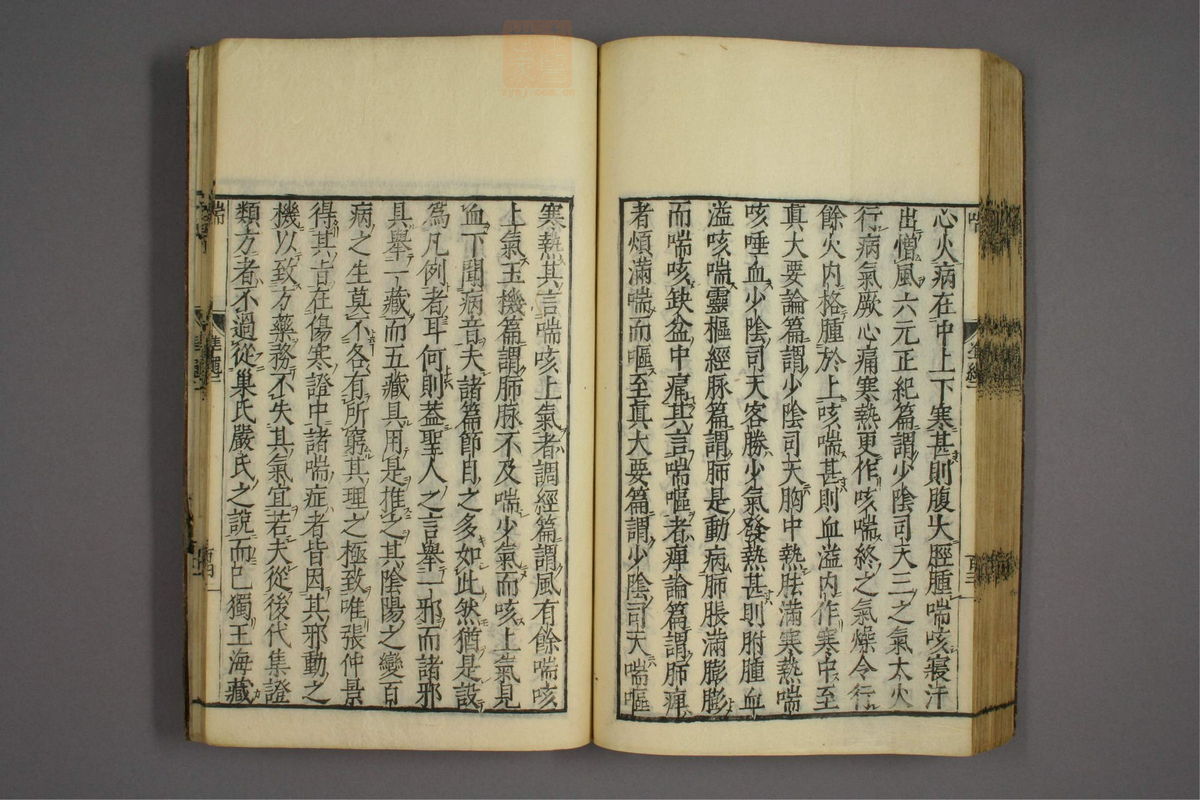 心火病在中上下寒甚則腹大脛腫喘咳寢汗
出憎風六元正紀篇謂少陰司天三之氣大火
行病氣厥心痛寒熱更作咳喘終之氣燥令行
餘火内格腫於上咳喘甚則血溢内作寒中至
眞大要論篇謂少陰司天胸中熱胠滿寒熱喘
咳唾血少陰司天客勝少氣發熱甚則胕腫血
溢咳喘靈樞經脉篇謂肺是動病肺脹滿膨膨
而喘咳缺盆中痛其言喘嘔者痺論篇謂肺痺
者煩滿喘而嘔至眞大要篇謂少陰司天喘嘔
寒熱其言喘咳上氣者調經篇謂風有餘喘咳
上氣玉機篇謂肺脉不及喘少氣而咳上氣見
血下聞病音夫諸篇節目之多如此然猶是設
爲凡例者耳何則蓋聖人之言舉一邪而諸邪
具舉一藏而五藏具用是推之其陰陽之變百
病之生莫不各有所窮其理之極致唯張仲景
得其旨在傷寒證中諸喘症者皆因其邪動之
機以致方藥務不失其氣宜若夫從後代集證
類方者不過從巢氏嚴氏之說而已獨王海藏
喘
準繩